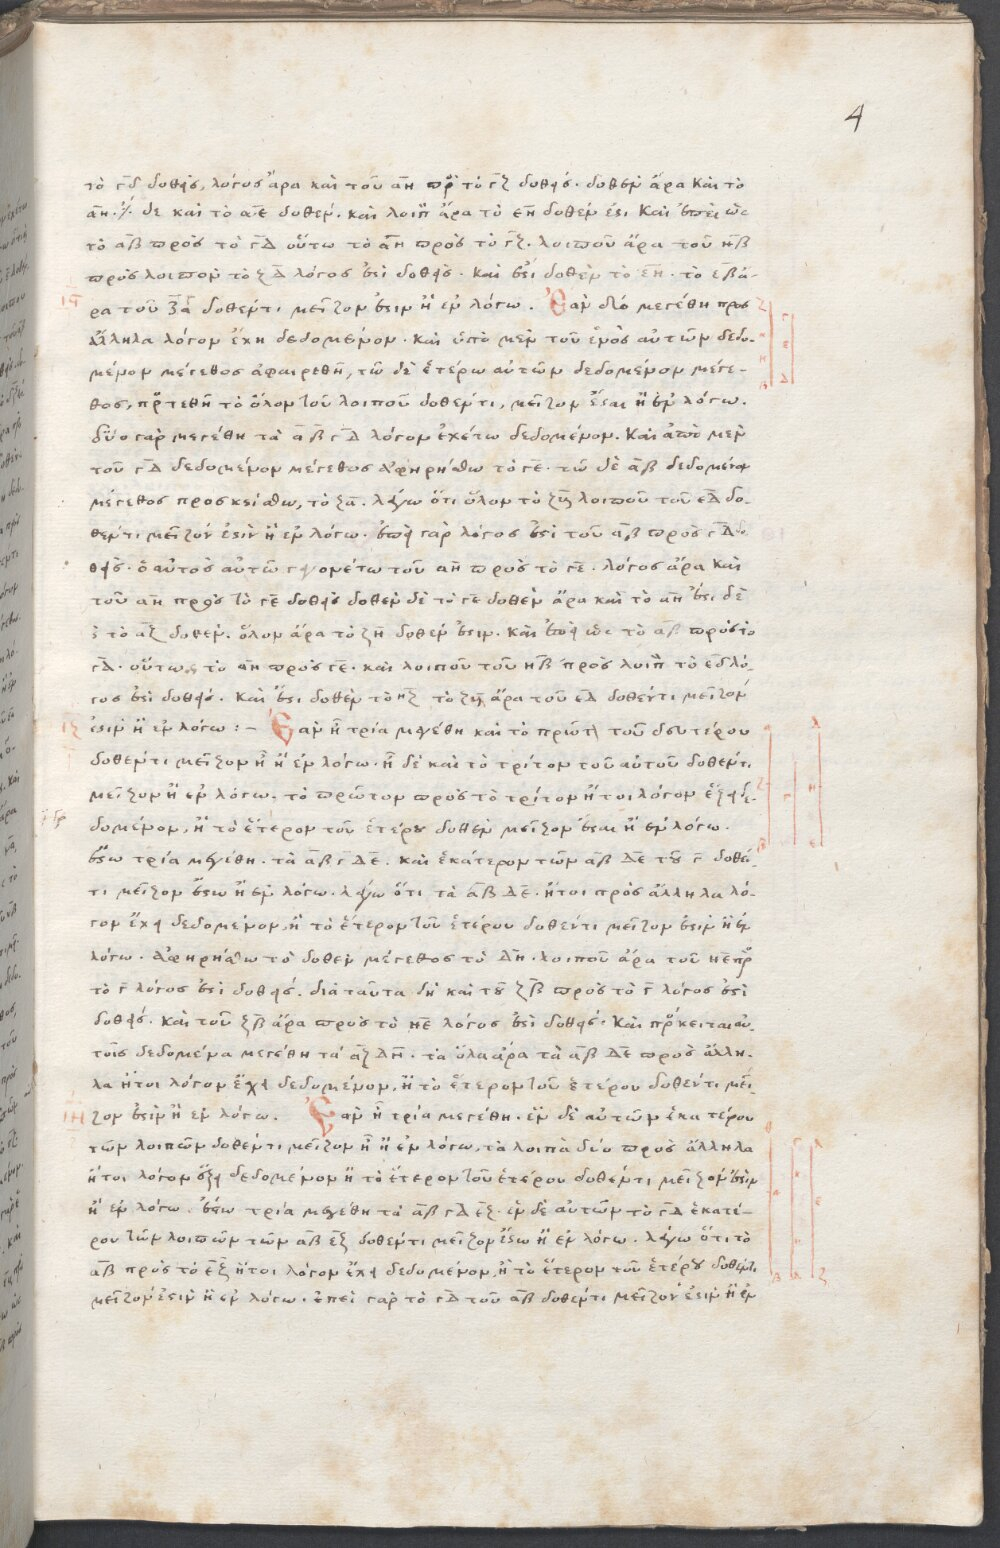 4
τὸ γδ δοθείς, λόγος ἄρα καὶ τοῦ αη πρ τὸ γζ δοθείς. δοθὲν ἄρα καὶ τὸ
αη. δὲ καὶ τὸ αε δοθέν. καὶ λοιπ ἄρα τὸ εη δοθέν ἐστι καὶ ἐπεὶ ὡς
τὸ αβ πρὸς τὸ γδ οὕτω τὸ αη πρὸς τὸ γζ. λοιποῦ ἄρα τοῦ ηβ
πρὸς λοιπὸν τὸ ζδ λόγος ἐστὶ δοθείς. καὶ ἐστι δοθὲν τὸ εη. τὸ εβ ἄ-
ιϛ ρα τοῦ δοθέντι μεῖζον ἐστιν ἢ ἐν λόγω. Ἐὰν δύο μεγέθη προς
ἄλληλα λόγον ἔχη δεδομένον. καὶ ὑπὸ μὲν τοῦ ἑνὸς αὐτῶν δεδο-
μένον μέγεθος ἀφαιρεθῆ, τῶ δὲ ἑτέρω αὐτῶν δεδομένον μέγε-
θος, πρτεθῆ τὸ ὅλον τοῦ λοιποῦ δοθέντι, μεῖζον ἔσται ἢ ἐν λόγω.
δύο γὰρ μεγέθη τὰ αβ γδ λόγον ἐχέτω δεδομένον. καὶ ἀπὸ μὲν
τοῦ γδ δεδομένον μέγεθος ἀφηρήσθω τὸ γε. τῶ δὲ αβ δεδομένον
μέγεθος προσκείσθω, τὸ ζα. λέγω ὅτι ὅλον τὸ ζη λοιποῦ τοῦ εδ δο-
θέντι μεῖζόν ἐστὶν ἢ ἐν λόγω. ἐπεὶ γὰρ λόγος ἐστὶ τοῦ αβ πρὸς γδ δο
θείς. ὁ αὐτὸς αὐτῶ γινομέτω τοῦ αη πρὸς τὸ γε. λόγος ἄρα καὶ
τοῦ αη πρὸς τὸ γε δοθείς δοθὲν δὲ τὸ γε δοθὲν ἄρα καὶ τὸ αη ἐστι δὲ
τὸ αζ δοθέν. ὅλον ἄρα τὸ ζη δοθέν ἐστιν. καὶ ἐπεὶ ὡς τὸ αβ πρὸς τὸ
γδ. οὕτως τὸ αη πρὸς γε. καὶ λοιποῦ τοῦ ηβ πρὸς λοιπ τὸ εδ λό-
γος ἐστὶ δοθείς. καὶ ἔστι δοθὲν τὸ ηζ τὸ ζη ἄρα τοῦ εδ δοθέντι μεῖζον
ιζ ἐστιν ἢ ἐν λόγω :- Ἐὰν ἦ τρία μεγέθη καὶ τὸ πρῶτ τοῦ δευτέρου
δοθέντι μεῖζον ἦ ἢ ἐν λόγω. ἦ δὲ καὶ τὸ τρίτον τοῦ αὐτοῦ δοθέντι
μεῖζον ἢ ἐν λόγω. τὸ πρῶτον πρὸς τὸ τρίτον ἤτοι λόγον ἕξει δε-
δομένον, ἢ τὸ ἕτερον τοῦ ἑτέρου δοθὲν μεῖζον ἔσται ἢ ἐν λόγω.
ἔστω τρία μεγέθη. τὰ αβ γ δε. καὶ ἑκάτερον τῶν αβ δε τοῦ γ δοθέ-
τι μεῖζον ἔστω ἢ ἐν λόγω. λέγω ὅτι τὰ αβ δε. ἤτοι πρὸς ἄλληλα λό-
γον ἔχει δεδομένον, ἢ τὸ ἕτερον τοῦ ἑτέρου δοθέντι μεῖζον ἐστιν ἢ ἐν
λόγω. ἀφηρήσθω τὸ δοθὲν μέγεθος τὸ δη. λοιποῦ ἄρα τοῦ ηε πρ
τὸ γ λόγος ἐστὶ δοθείς. διὰ ταῦτα δὴ καὶ τοῦ ζβ πρὸς τὸ γ λόγος ἐστὶ
δοθείς. καὶ τοῦ ζβ ἄρα πρὸς τὸ ηε λόγος ἐστὶ δοθείς. καὶ πρκειται αυ-
τοῖς δεδομένα μεγέθη τά αζ δη. τὰ ὅλα ἄρα τὰ αβ δε πρὸς ἄλλη-
λα ἤτοι λόγον ἔχει δεδομένον, ἢ τὸ ἕτερον τοῦ ἑτέρου δοθέντι μεῖ
ιη ζον ἐστιν ἢ ἐν λόγω. Ἐὰν ἦ τρία μεγέθη. ἓν δὲ αὐτῶν ἑκατέρου
τῶν λοιπῶν δοθέντι μεῖζον ἦ ἢ ἐν λόγω, τὰ λοιπὰ δύο πρὸς ἄλληλα
ἤτοι λόγον ἕξει δεδομένον ἢ τὸ ἕτερον τοῦ ἑτέρου δοθέντι μεῖζον ἐστιν
ἢ ἐν λόγω. ἔστω τρία μεγέθη τὰ αβ γδ εζ. ἓν δὲ αὐτῶν τὸ γδ ἑκατέ-
ρου τῶν λοιπῶν τῶν αβ εζ δοθέντι μεῖζον ἔστω ἢ ἐν λόγω. λέγω ὅτι τὸ
αβ πρὸς τὸ εζ ἤτοι λόγον ἔχει δεδομένον, ἢ τὸ ἕτερον τοῦ ἑτέρου δοθέντι
μεῖζον ἐστιν ἢ ἐν λόγω. ἐπεὶ γὰρ τὸ γδ τοῦ αβ δοθέντι μεῖζον ἐστιν ἢ ἐν